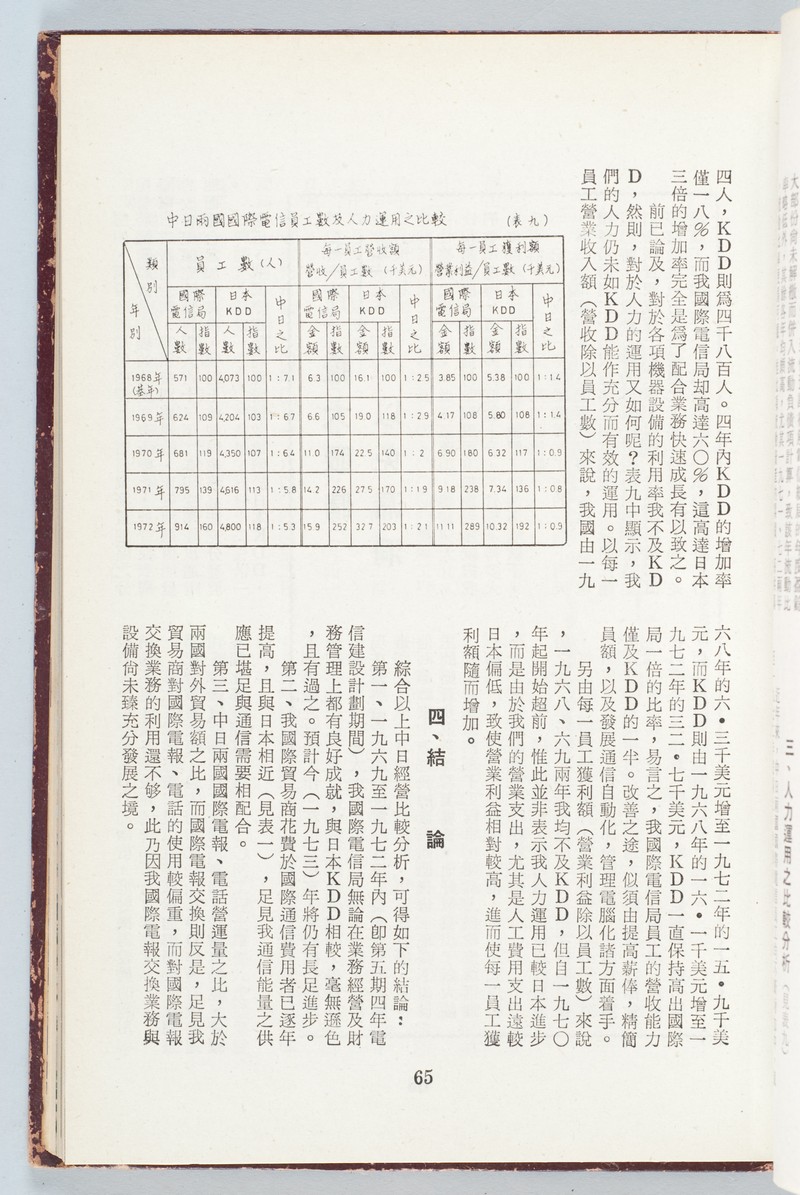 四人，KDD則爲四千八百人。四年內KDD的增加率
僅一八％，而我國際電信局却高達六〇％，這高達日本
三倍的增加率完全是爲了配合業務快速成長有以致之。
前已論及，對於各項機器設備的利用率我不及KD
D，然則，對於人力的運用又如何呢？表九中顯示，我
們的人力仍未如KDD能作充分而有效的運用。以每一
員工營業收入額（營收除以員工數）來說，我國由一九
中日兩國國際電信員工數及人力運用之比較 （表九）
類別 員工數（人） 每一員工營收額 營收／員工數（千美元） 每一員工獲利額 營業利益／員工數（千美元）
國際電信局 日本KDD 中日之比 國際電信局 日本KDD 中日之比 國際電信局 日本KDD 中日之比
年別 人數 指數 人數 指數 金額 指數 金額 指數 金額 指數 金額 指數
1968年（基年） 571 100 4,073 100 1：7.1 6.3 100 16.1 100 1：2.5 3.85 100 5.38 100 1：1.4
1969年 624 109 4,204 103 1：6.7 6.6 105 19.0 118 1：2.9 4.17 108 5.80 108 1：1.4
1970年 681 119 4,350 107 1：6.4 11.0 174 22.5 140 1：2 6.90 180 6.32 117 1：0.9
1971年 795 139 4,616 113 1：5.8 14.2 226 27.5 170 1：1.9 9.18 238 7.34 136 1：0.8
1972年 914 160 4,800 118 1：5.3 15.9 252 32.7 203 1：2.1 11.11 289 10.32 192 1：0.9
六八年的六•三千美元增至一九七二年的一五•九千美
元，而KDD則由一九六八年的一六•一千美元增至一
九七二年的三二•七千美元，KDD一直保持高出國際
局一倍的比率，易言之，我國際電信局員工的營收能力
僅及KDD的一半。改善之途，似須由提高薪俸，精簡
員額，以及發展通信自動化，管理電腦化諸方面着手。
另由每一員工獲利額（營業利益除以員工數）來說
，一九六八、六九兩年我均不及KDD，但自一九七〇
年起開始超前，惟此並非表示我人力運用已較日本進步
，而是由於我們的營業支出，尤其是人工費用支出遠較
日本偏低，致使營業利益相對較高，進而使每一員工獲
利額隨而增加。
四、結論
綜合以上中日經營比較分析，可得如下的結論：
第一、一九六九至一九七二年內（卽第五期四年電
信建設計劃期間），我國際電信局無論在業務經營及財
務管理上都有良好成就，與日本KDD相較，毫無遜色
，且有過之。預計今（一九七三）年將仍有長足進步。
第二、我國際貿易商花費於國際通信費用者已逐年
提高，且與日本相近（見表一），足見我通信能量之供
應已堪足與通信需要相配合。
第三、中日兩國國際電報、電話營運量之比，大於
兩國對外貿易額之比，而國際電報交換則反是，足見我
貿易商對國際電報、電話的使用較偏重，而對國際電報
交換業務的利用還不够，此乃因我國際電報交換業務與
設備尙未臻充分發展之境。
65
三、人力運用之比較分析